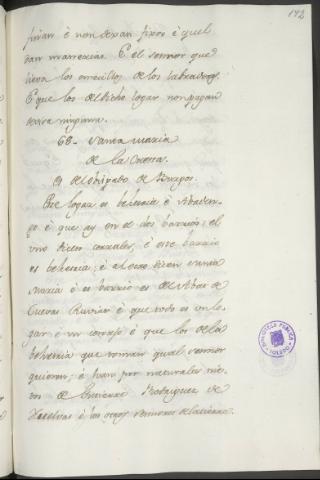 172
finan è non dexan fixos è quel
dan mannerias. E el sennor que
lieva los omecillos de los labradores.
E que los del dicho logar non pagan
devisa ninguna.
68. Santa maria
de la Cuesta.
Es del obispado de Burgos.
Este logar es behetria è Abaden-
go è que ay en el dos barrios, el
uno dicen corrales, è este barrio
es behetria; è al otro dicen santa
maria è es barrio es del Abat de
Cuevas Ruvias è que todo es un lo-
gar è un conçejo è que los de la
behetria que toman qual sennor
quieren; è han por naturales nie-
tos de Gutierre Rodriguez de
è los otros sennores de
BIBLIOTECA PUBLICA
TOLEDO